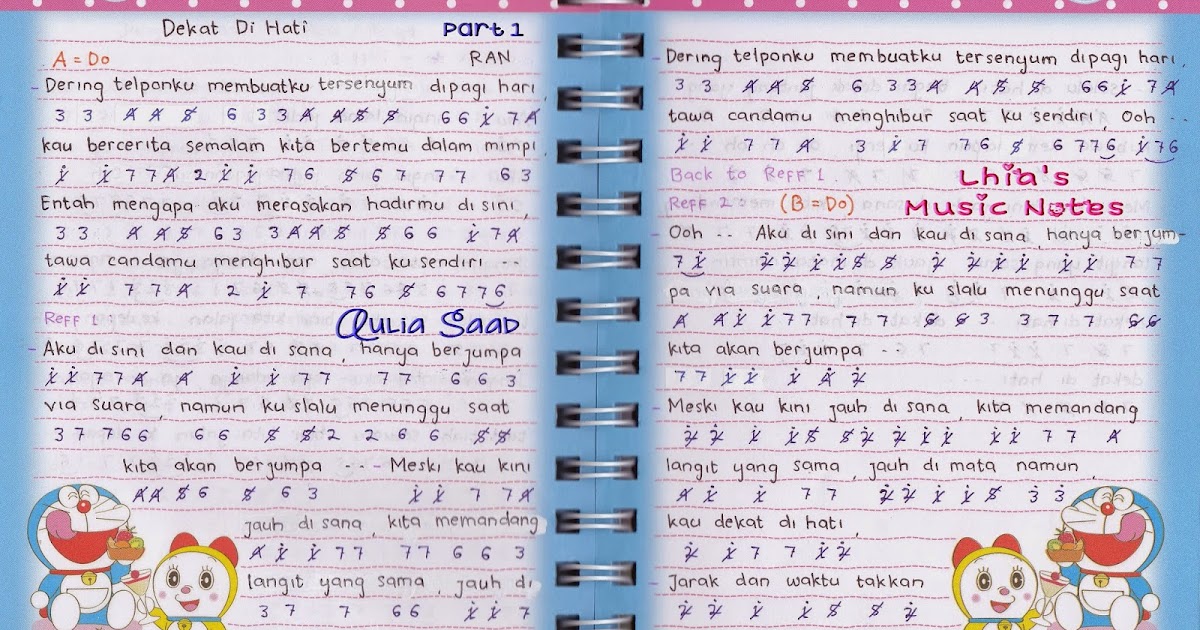 Dekat Di Hati Part 1
A = Do RAN
- Dering telponku membuatku tersenyum dipagi hari,
3 3 4̸ 4̸ 5̸ 6 3 3 4̸ 4̸ 5̸ 5̸ 6 6 1̸̇ 7 4̸
kau bercerita semalam kita bertemu dalam mimpi,
1̸̇ 1̸̇ 7 7 4̸ 2̇ 1̸̇ 1̸̇ 7 6 5̸ 6 7 7 7 6 3
Entah mengapa aku merasakan hadirmu di sini,
3 3 4̸ 4̸ 5̸ 6 3 3 4̸ 4̸ 5̸ 5̸ 6 6 1̸̇ 7 4̸
tawa candamu menghibur saat ku sendiri --
1̸̇ 1̸̇ 7 7 4̸ 2̇ 1̸̇ 7 7 6 5̸ 6 7 7 6
Reff 1 : Aulia Saad
- Aku di sini dan kau di sana, hanya berjumpa
1̸̇ 1̸̇ 7 7 4̸ 4̸ 1̸̇ 1̸̇ 7 7 7 7 6 6 3
via suara, namun ku slalu menunggu saat
3 7 7 6 6 6 6 5̸ 5̸ 2 2 6 6 5̸ 5̸
kita akan berjumpa --- - Meski kau kini
4̸ 4̸ 5̸ 6 5̸ 6 3 1̸̇ 1̸̇ 7 7 4̸
jauh di sana, kita memandang
4̸ 1̸̇ 1̸̇ 7 7 7 7 6 6 3
langit yang sama, jauh di
3 7 7 6 6 1̸̇ 1̸̇ 7
- Dering telponku membuatku tersenyum dipagi hari,
3 3 4̸ 4̸ 5̸ 6 3 3 4̸ 4̸ 5̸ 5̸ 6 6 1̸̇ 7 4̸
tawa candamu menghibur saat ku sendiri, Ooh --
1̸̇ 1̸̇ 7 7 4̸ 3̇ 1̸̇ 7 7 6 5̸ 6 7 7 6 1̸̇ 7 6
Back to Reff 1. Lhia's
Reff 2 : (B = Do) Music Notes
- Ooh -- Aku di sini dan kau di sana, hanya berjum-
7 1̸̇ 2̸̇ 2̸̇ 1̸̇ 1̸̇ 5̸ 5̸ 2̸̇ 2̸̇ 1̸̇ 1̸̇ 1̸̇ 1̸̇ 7 7
pa via suara, namun ku slalu menunggu saat
4̸ 4̸ 1̸̇ 1̸̇ 7 7 7 7 6̸ 6̸ 3 3 7 7 6̸ 6̸
kita akan berjumpa --
7 7 1̸̇ 1̸̇ 1̸̇ 4̸ 2̸̇
- Meski kau kini jauh di sana, kita memandang
2̸̇ 2̸̇ 1̸̇ 1̸̇ 5̸ 5̸ 2̸̇ 2̸̇ 1̸̇ 1̸̇ 1̸̇ 1̸̇ 7 7 4̸
langit yang sama, jauh di mata namun,
4̸ 1̸̇ 1̸̇ 7 7 2̸̇ 2̸̇ 1̸̇ 1̸̇ 5̸ 3̇ 3̇
kau dekat di hati,
2̸̇ 1̸̇ 7 7 1̸̇ 2̸̇
- Jarak dan waktu takkan
2̸̇ 2̸̇ 1̸̇ 1̸̇ 5̸ 5̸ 2̸̇